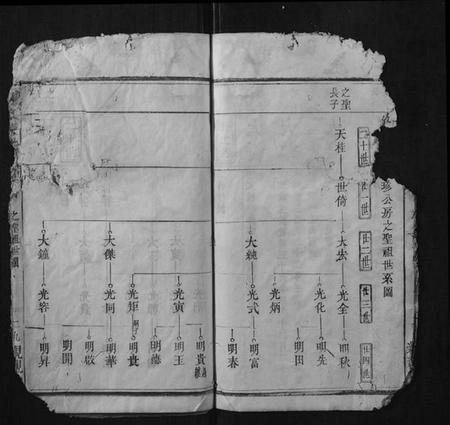 珍公房之聖祖世系圖
二十世
廿一世
廿二世
廿三世
廿四世
之聖
長子
天桂
世倚
大宏
大純
大傑
大鐘
光全
光化
光炳
光武
光寅
光矩
光同
光容
明秋
明先
明田
明富
明春
明貴
明玉
明德
明貴
明華
明啟
明開
明昇
之聖祖世系圖